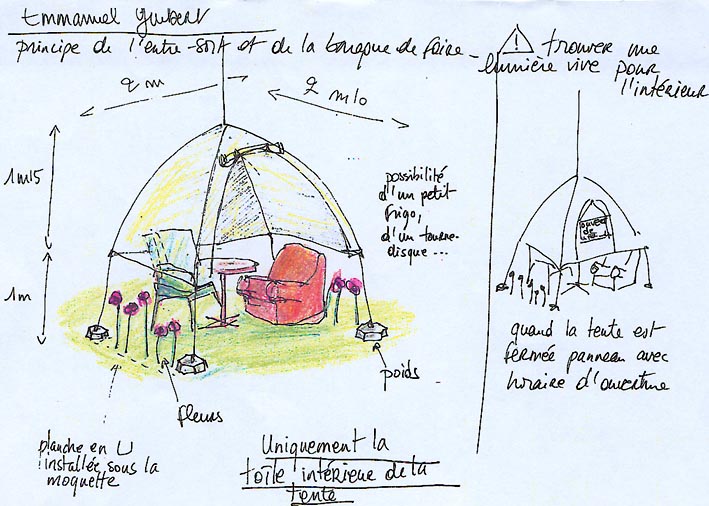 Emmanuel Guibert
principe de l'entre-sort et de la baraque de foire -
⚠ trouver une
lumière vive pour
l'intérieur
2 m
2 m 10
1m15
1m
possibilité
d'un petit
frigo,
d'un tourne-
disque ...
poids
fleurs
planche en U
installée sous la
moquette
Uniquement la
toile intérieure de la
tente
quand la tente est
fermée panneau avec
horaire d'ouverture